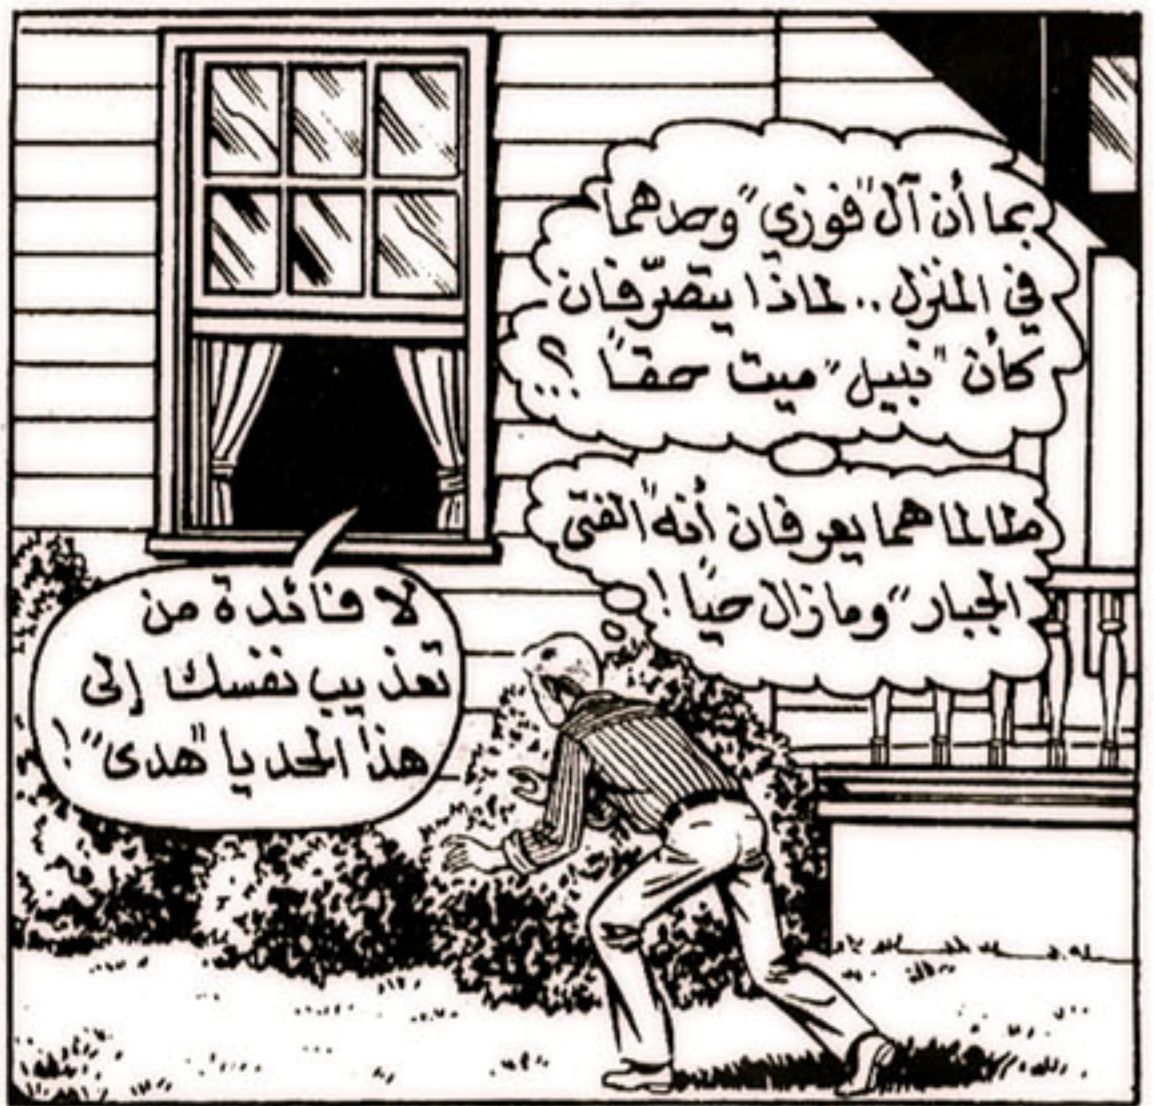 بما أن آل "فوزي" وحدهما
في المنزل .. لماذا يتصرّفان
كأن "نبيل" ميت حقاً ؟!
طالما هما يعرفان أنه "الفتى
الجبار" وما زال حيّاً !
لا فائدة من
تعذيب نفسك إلى
هذا الحد يا "هدى" !